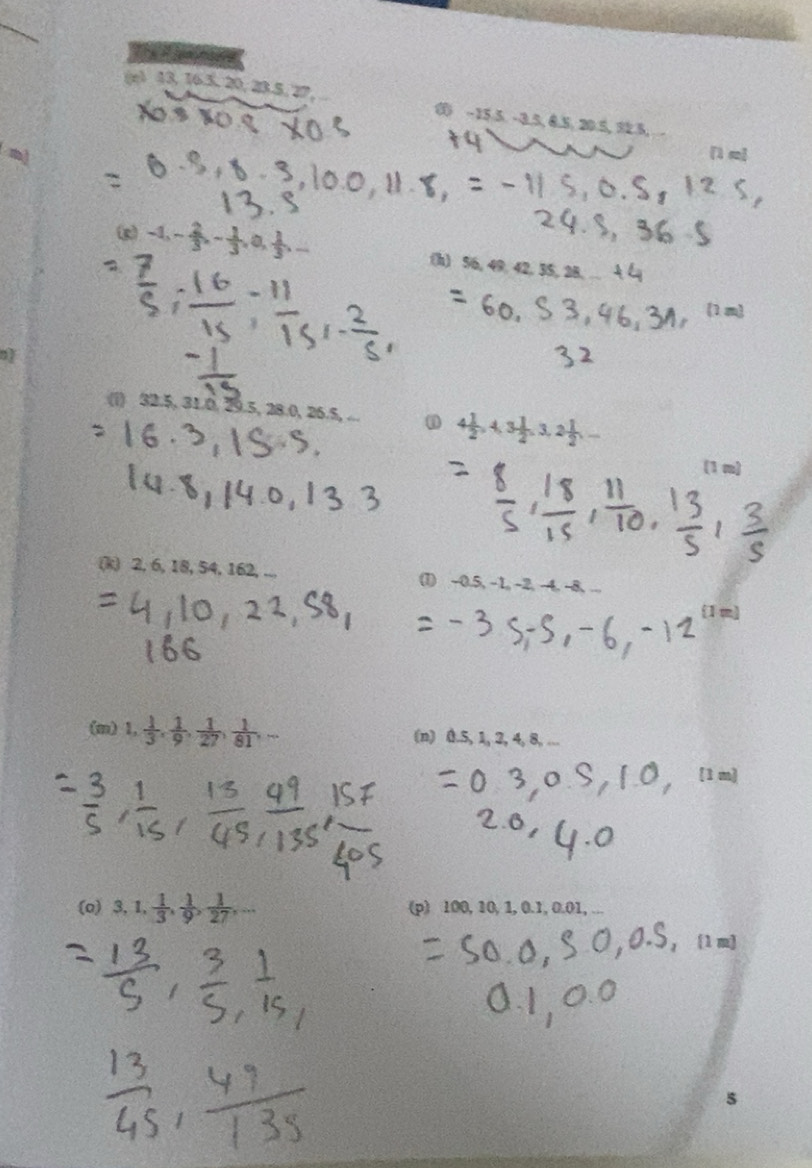 (e) 13, 16.5, 20, 23.5, 27, ...
×0.5 ×0.5 ×0.5
= 6.5, 8.3, 10.0, 11.8,
13.5
(f) -15.5, -3.5, 8.5, 20.5, 32.5, ...
+4
[1 m]
= -11 5, 0.5, 12 5,
24.5, 36.5
(g) -1, -2/3, -1/3, 0, 1/3, ...
= 7/5, -16/15, -11/15, -2/5,
-1/15
(h) 56, 49, 42, 35, 28, ... +4
= 60, 53, 46, 39, [1 m]
32
(i) 32.5, 31.0, 29.5, 28.0, 26.5, ...
= 16.3, 15.5,
14.8, 14.0, 13 3
(j) 4 1/2, 4, 3 1/2, 3, 2 1/2, ...
[1 m]
= 8/5, 18/15, 11/10, 13/5, 3/5
(k) 2, 6, 18, 54, 162, ...
= 4, 10, 22, 58,
166
(l) -0.5, -1, -2, -4, -8, ...
= -3 5, -5, -6, -12 [1 m]
(m) 1, 1/3, 1/9, 1/27, 1/81, ...
= 3/5, 1/15, 13/45, 49/135, 157/405
(n) 0.5, 1, 2, 4, 8, ...
= 0 3, 0.5, 1.0, [1 m]
2.0, 4.0
(o) 3, 1, 1/3, 1/9, 1/27, ...
= 13/5, 3/5, 1/15,
13/45, 49/135
(p) 100, 10, 1, 0.1, 0.01, ...
= 50.0, 5.0, 0.5, [1 m]
0.1, 0.0
5